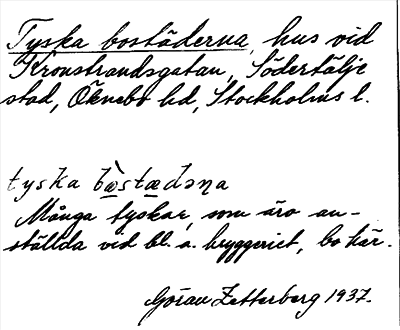 Tyska bostäderna, hus vid
Kronstrandsgatan, Södertälje
stad, Öknebo hd, Stockholms l.
tyska bæ̀stædəɳa
Många tyskar, som äro an-
ställda vid bl. a. bryggeriet, bo här.
Göran Zetterberg 1937.